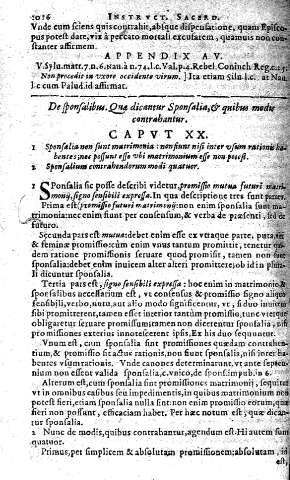 1016 INSTRVCT. SACERD.
Vnde cum sciens quis contrahit, absque dispensatione, quam Episcopus
potest dare, vix à peccato mortali excusarem, quamuis non constanter
affirmem.
APPENDIX AV.
Non procedit in vxore occidente virum. ] Ita etiam Silu.
l.c. cum Palud. id affirmat.
De sponsalibus. Quæ dicantur Sponsalia, & quibus modis
contrahantur.
CAPVT XX.
1 Sponsalia non sunt matrimonia: non sunt nisi inter vsum rationis habentes;
nec possunt esse vbi matrimonium esse non potest.
2 Sponsalium contrahendorum modi quatuor.
1 SPonsalia sic posse describi videtur, promissio mutua futuri matrimonij,
signo sensibili expressa. In qua descriptione tres sunt partes.
Prima est; promissio futuri matrimonij: non enim sponsalia sunt matrimonia:
nec enim fiunt per consensum, & verba de præsenti, sed de
futuro.
Secunda pars est, mutua: debet enim esse ex vtraque parte, puta, viri
& feminæ promissio: cùm enim vnus tantum promittit, tenetur quidem
ratione promissionis seruare quod promisit, tamen non sunt
sponsalia: debet enim inuicem alter alteri promittere; ob id in plurali
dicuntur sponsalia.
Tertia pars est, signo sensibili expressa: hoc enim in matrimonio &
sponsalibus necessarium est, vt consensus & promissio signo aliquo
sensibili, verbo, nutu, aut alio modo significetur, vt, si duo inuicem
sibi promitterent, tamen esset interior tantùm promissio, tunc vterque
obligaretur seruare promissum; tamen non dicerentur sponsalia,
promissiones exterius innotescerent ipsis. Ex his duo sequuntur.
Vnum est, cum sponsalia sint promissiones quædam contrahentium,
& promissio sit actus rationis, non sunt sponsalia, nisi inter habentes
vsum rationis. Vnde canones determinarunt, vt ante septennium
non essent valida sponsalia,
Alterum est, cum sponsalia sint promissiones matrimonij, sequitur
vt in omnibus casibus seu impedimentis, in quibus matrimonium non
potest fieri, etiam sponsalia nulla sint: non enim promissio eorum, quæ
fieri non possunt, efficaciam habet. Per hæc notum est, quæ dicantur
sponsalia.
2 Nunc de modis, quibus contrahantur, agendum est. Hi autem sunt
quatuor.
Primus, per simplicem & absolutam promissionem; absolutam, id
est,